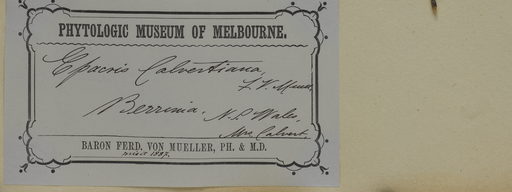 PHYTOLOGIC MUSEUM OF MELBOURNE.
Epacris Calvertiana,
F. v. Muell.
Berrima. N. S. Wales,
Mrs Calvert.
BARON FERD. VON MUELLER, PH. & M.D.